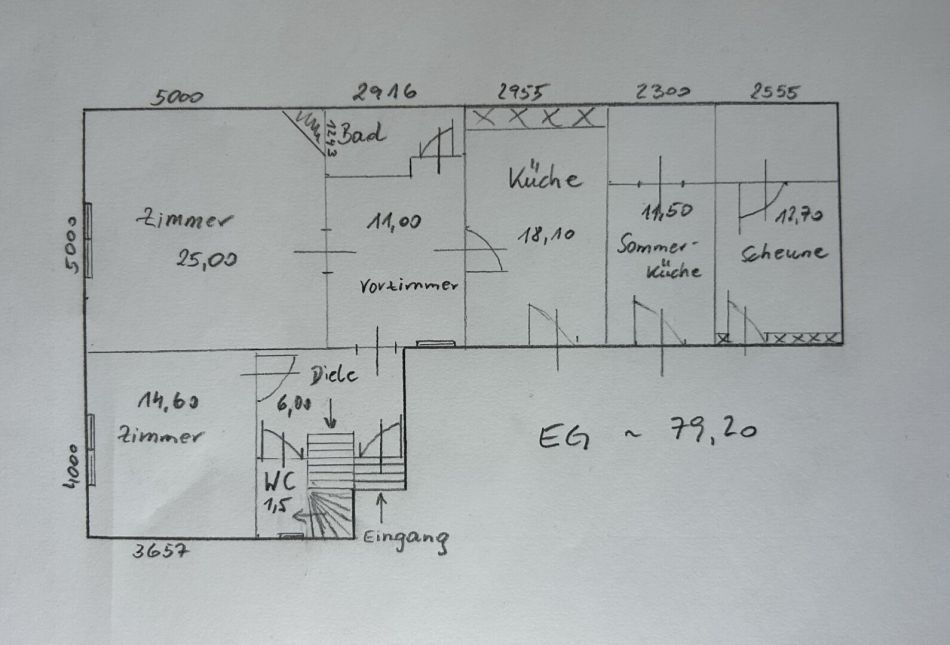 5000
2916
2955
2300
2555
1243
Bad
Küche
Zimmer
25,00
5000
11,00
Vorzimmer
18,10
11,50
Sommer-
küche
12,70
Scheune
Diele
6,00
14,60
Zimmer
4000
WC
1,5
Eingang
3657
EG ~ 79,20